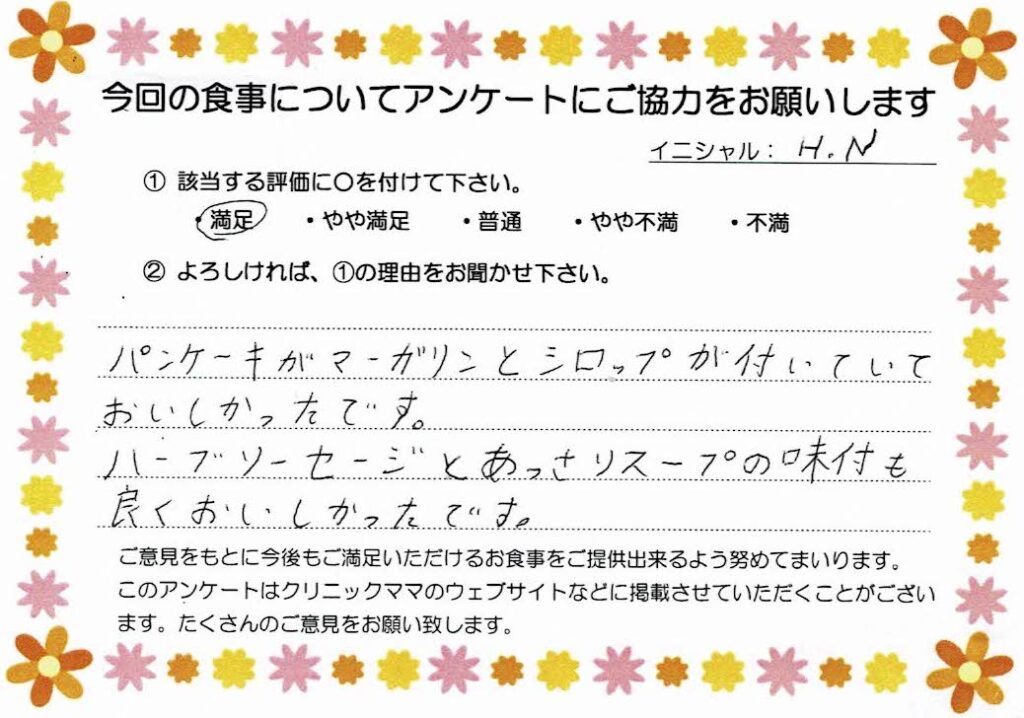 今回の食事についてアンケートにご協力をお願いします
イニシャル： H.N
① 該当する評価に〇を付けて下さい。
・満足 ・やや満足 ・普通 ・やや不満 ・不満
② よろしければ、①の理由をお聞かせ下さい。
パンケーキがマーガリンとシロップが付いていて
おいしかったです。
ハーブソーセージとあっさりスープの味付も
良くおいしかったです。
ご意見をもとに今後もご満足いただけるお食事をご提供出来るよう努めてまいります。
このアンケートはクリニックママのウェブサイトなどに掲載させていただくことがござい
ます。たくさんのご意見をお願い致します。